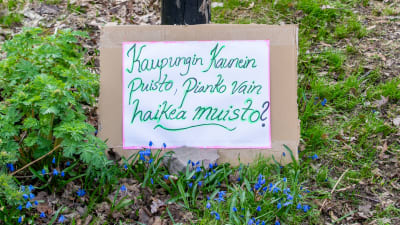 Kaupungin Kaunein
Puisto, Pianko Vain
haikea muisto?